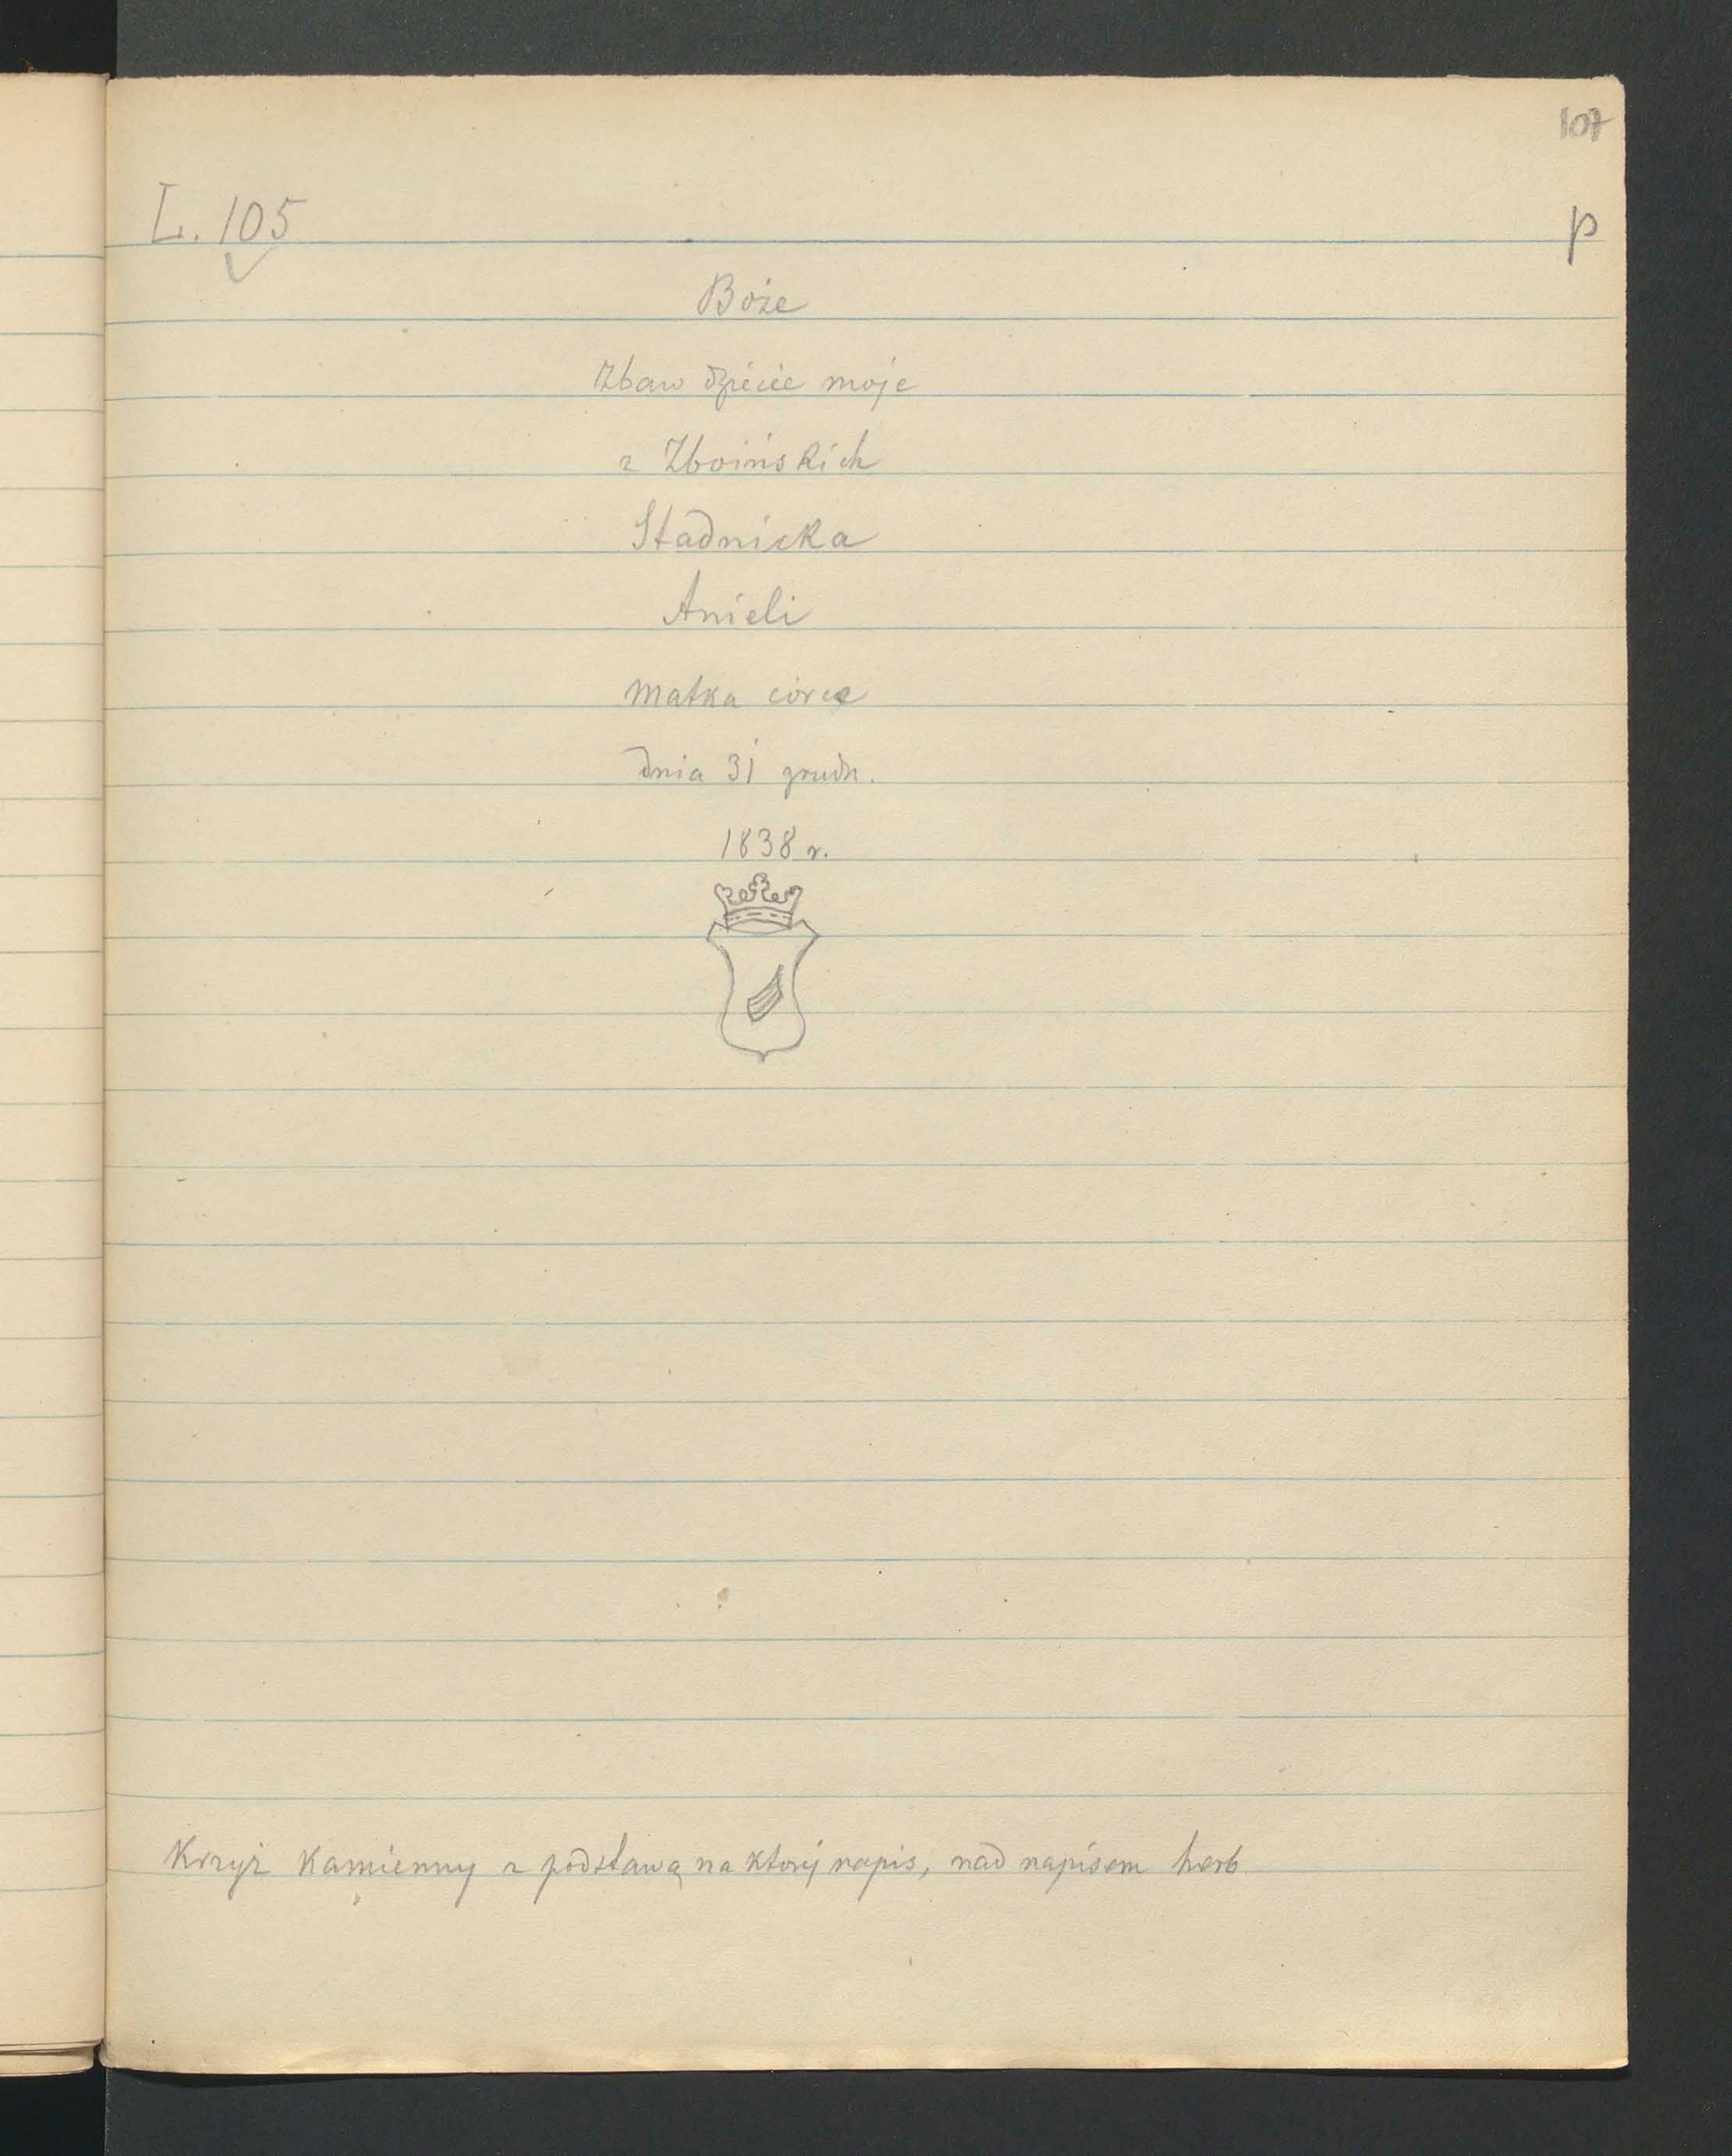 107
L. 105
p
Boże
Zbaw dziecie moje
z Zboińskich
Stadnicka
Anieli
Matka córce
dnia 31 grudn.
1838 r.
Krzyż kamienny z podstawą na którj napis, nad napisem herb.